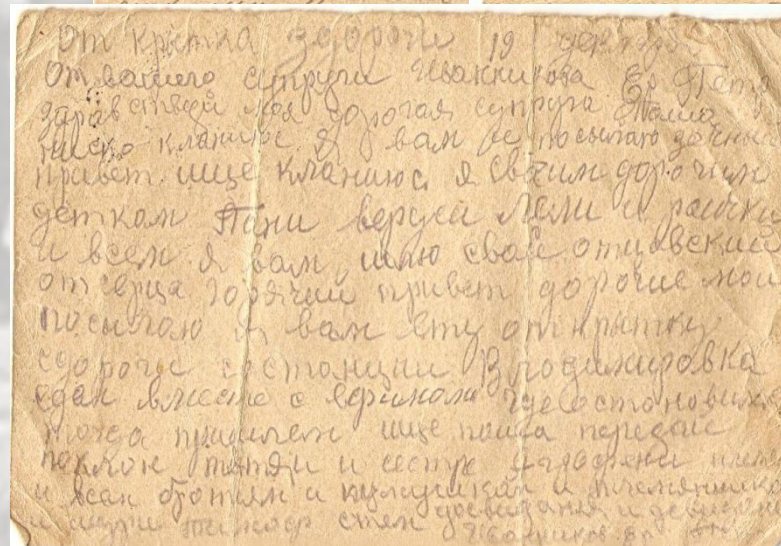 От крытка здороги 19 декабря
От вашего супруга Иванникова Ер Петр
здравствуй моя дорогая супруга Паша
ниско кланиюс я вам и посылаю
привет ище кланиюс я своим дорогим
деткам Тани веруси Лели и раички
и всем я вам шлю свой отцовский
от серца горячий привет дорогие мои
посылаю я вам ету открытку
здороги состанции Владимировка
едем вместе с где остановимс
тогда пришлем ище паша передай
поклон тяти и сестре
и всем братям и кумушкам и племянникам
и стем досвидания
Иванников Ер